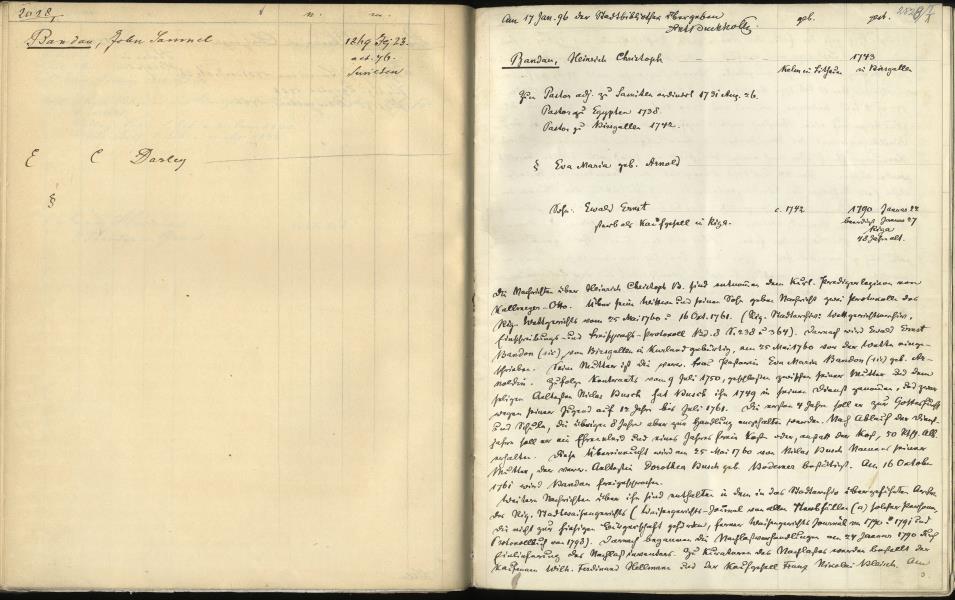 2018,
n.
m.
Bandau, John Samuel
1849 Jy 23.
aet. 76.
E C Darley
§
Am 17 Jan. 96 der Stadtbibliothek übergeben
geb. gest.
Bandau, Heinrich Christoph
1743
in Birsgallen
zum Pastor adj. zu Samiten ordinirt 1731 Aug. 26.
Pastor zu Egypten 1738.
Pastor zu Birsgallen 1742.
§ Eva Maria geb. Arnold
Sohn: Ewald Ernst c. 1742 1790 Januar 22
starb als Kaufgesell in Riga. beerdigt Januar 27
Riga
48 Jahr alt.
Die Nachrichten über Heinrich Christoph B. sind entnommen dem Kurl. Predigerlexicon von
Kallmeyer-Otto. Über seine Wittwe und seinen Sohn geben Nachricht zwei Protokolle des
Rig. Wettgerichts vom 25 Mai 1760 u 16 Oct. 1761. (Rig. Stadtarchiv: Wettgerichtsarchiv,
Einschreibungs- und Freisprechs-Protokoll Bd. 8 S. 238 u 364). Darnach wird Ewald Ernst
Bandon (sic), von Birsgallen in Kurland gebürtig, am 25 Mai 1760 vor der Wette einge-
schrieben. Seine Mutter ist die verw. Frau Pastorin Eva Maria Bandon (sic) geb. Ar-
noldin. Zufolge Kontracts vom 9 Juli 1750, geschlossen zwischen seiner Mutter und dem
seligen Aeltesten Niclas Busch hat Busch ihn 1749 in seinen Dienst genommen, und zwar
wegen seiner Jugend auf 12 Jahr bis Juli 1761. Die ersten 4 Jahre soll er zur Gottesfurcht
und Schule, die übrigen 8 Jahre aber zur Handlung angehalten werden. Nach Ablauf der Dienst-
jahre soll er ein Ehrenkleid und eines Jahres freie Kost oder, anstatt der Kost, 50 Rthlr. Alb.
erhalten. Diese Übereinkunft wird am 25 Mai 1760 von Niclas Busch Namens seiner
Mutter, der verw. Aeltestin Dorothea Busch geb. bestätigt. Am 16 Oktober
1761 wird Bandau freigesprochen.
Weitere Nachrichten über ihn sind enthalten in dem in das Stadtarchiv übergeführten Archiv
des Rig. Stadtwaisengerichts (Waisengerichts-Journal von allen Sterbfällen (a) solcher Personen,
die nicht zur hiesigen Bürgerschaft gehörten, ferner Waisengerichts Journal von 1790 u 1791 und
Protocollbuch von 1793). Darnach begannen die Nachlassverhandlungen am 24 Januar 1790 durch
Einlieferung des Nachlassinventars. Zu Kuratoren des Nachlasses werden bestellt der
Kaufmann Wilh. Ferdinand Hollmann und der Kaufgesell Franz Nikolai Am